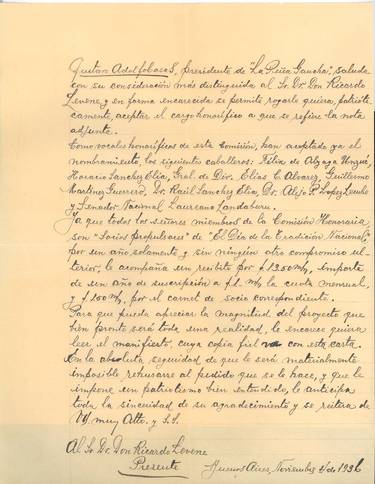 Gustavo Adolfo Casas, presidente de "La Peña Gaucha", saluda
con su consideración más distinguida al Sr. Dr. Don Ricardo
Levene, y en forma encarecida se permite rogarle quiera, patrióti-
camente, aceptar el cargo honorífico a que se refiere la nota
adjunta.
Como vocales honoríficos de esta Comisión, han aceptado ya el
nombramiento, los siguientes caballeros: Félix de Alzaga Unzué,
Horacio Sanchez Elía, Gral. de Div. Elías C. Alvarez, Guillermo
Martínez Guerrero, Dr. Raúl Sanchez Elía, Dr. Alejo P.
y Senador Nacional Laureano Landaburu.
Ya que todos los señores miembros de la Comisión Honoraria
son "Socios propulsores" de "El Día de la Tradición Nacional",
por un año solamente y sin ningún otro compromiso ul-
terior, le acompaña un recibo por $ 13.50 m/n, importe
de un año de suscripción a $ 1. m/n la cuota mensual,
y $ 1.00 m/n, por el carnet de socio correspondiente.
Para que pueda apreciar la magnitud del proyecto que
bien pronto será toda una realidad, le encarece quiera
leer el manifiesto, cuya copia fiel va con esta carta.
En la absoluta seguridad de que le será materialmente
imposible rehusarse al pedido que se le hace, y que le
impone un patriotismo bien entendido, le anticipa
toda la sinceridad de su agradecimiento y se reitera de
Vd. muy Atto. y S.S.
Al Sr. Dr. Don Ricardo Levene
Presente
Buenos Aires, Noviembre 4/ de 1936